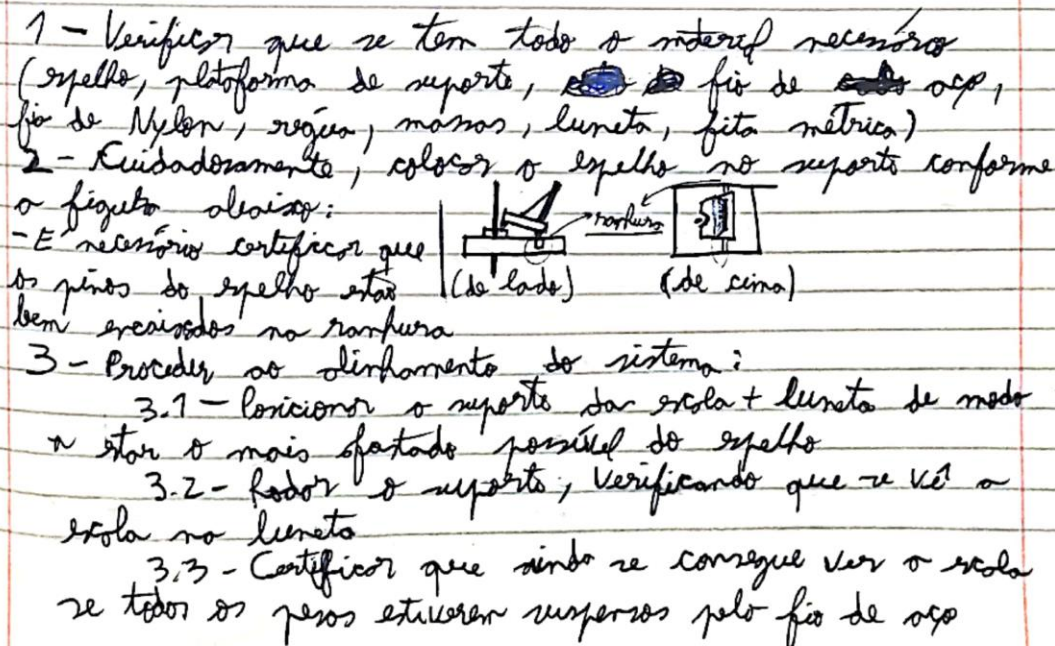 1 - Verificar que se tem todo o material necessário
(espelho, plataforma de suporte, fio de aço,
fio de Nylon, régua, massas, luneta, fita métrica)
2 - Cuidadosamente, colocar o espelho no suporte conforme
a figura abaixo:
ranhura
- É necessário certificar que
os pinos do espelho estão
(de lado) (de cima)
bem encaixados na ranhura
3 - Proceder ao alinhamento do sistema:
3.1 - Posicionar o suporte da escala + luneta de modo
a estar o mais afastado possível do espelho
3.2 - Rodar o suporte, verificando que se vê a
escala na luneta
3.3 - Certificar que ainda se consegue ver a escala
se todos os pesos estiverem suspensos pelo fio de aço